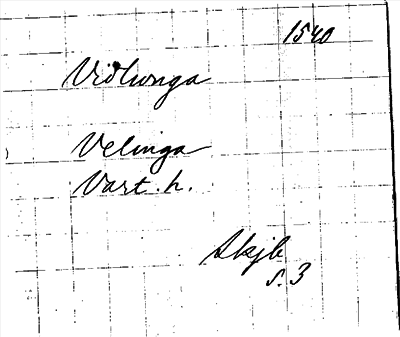 1540
Vidhunga
Velinga
Vart. h.
Skjb
s. 3